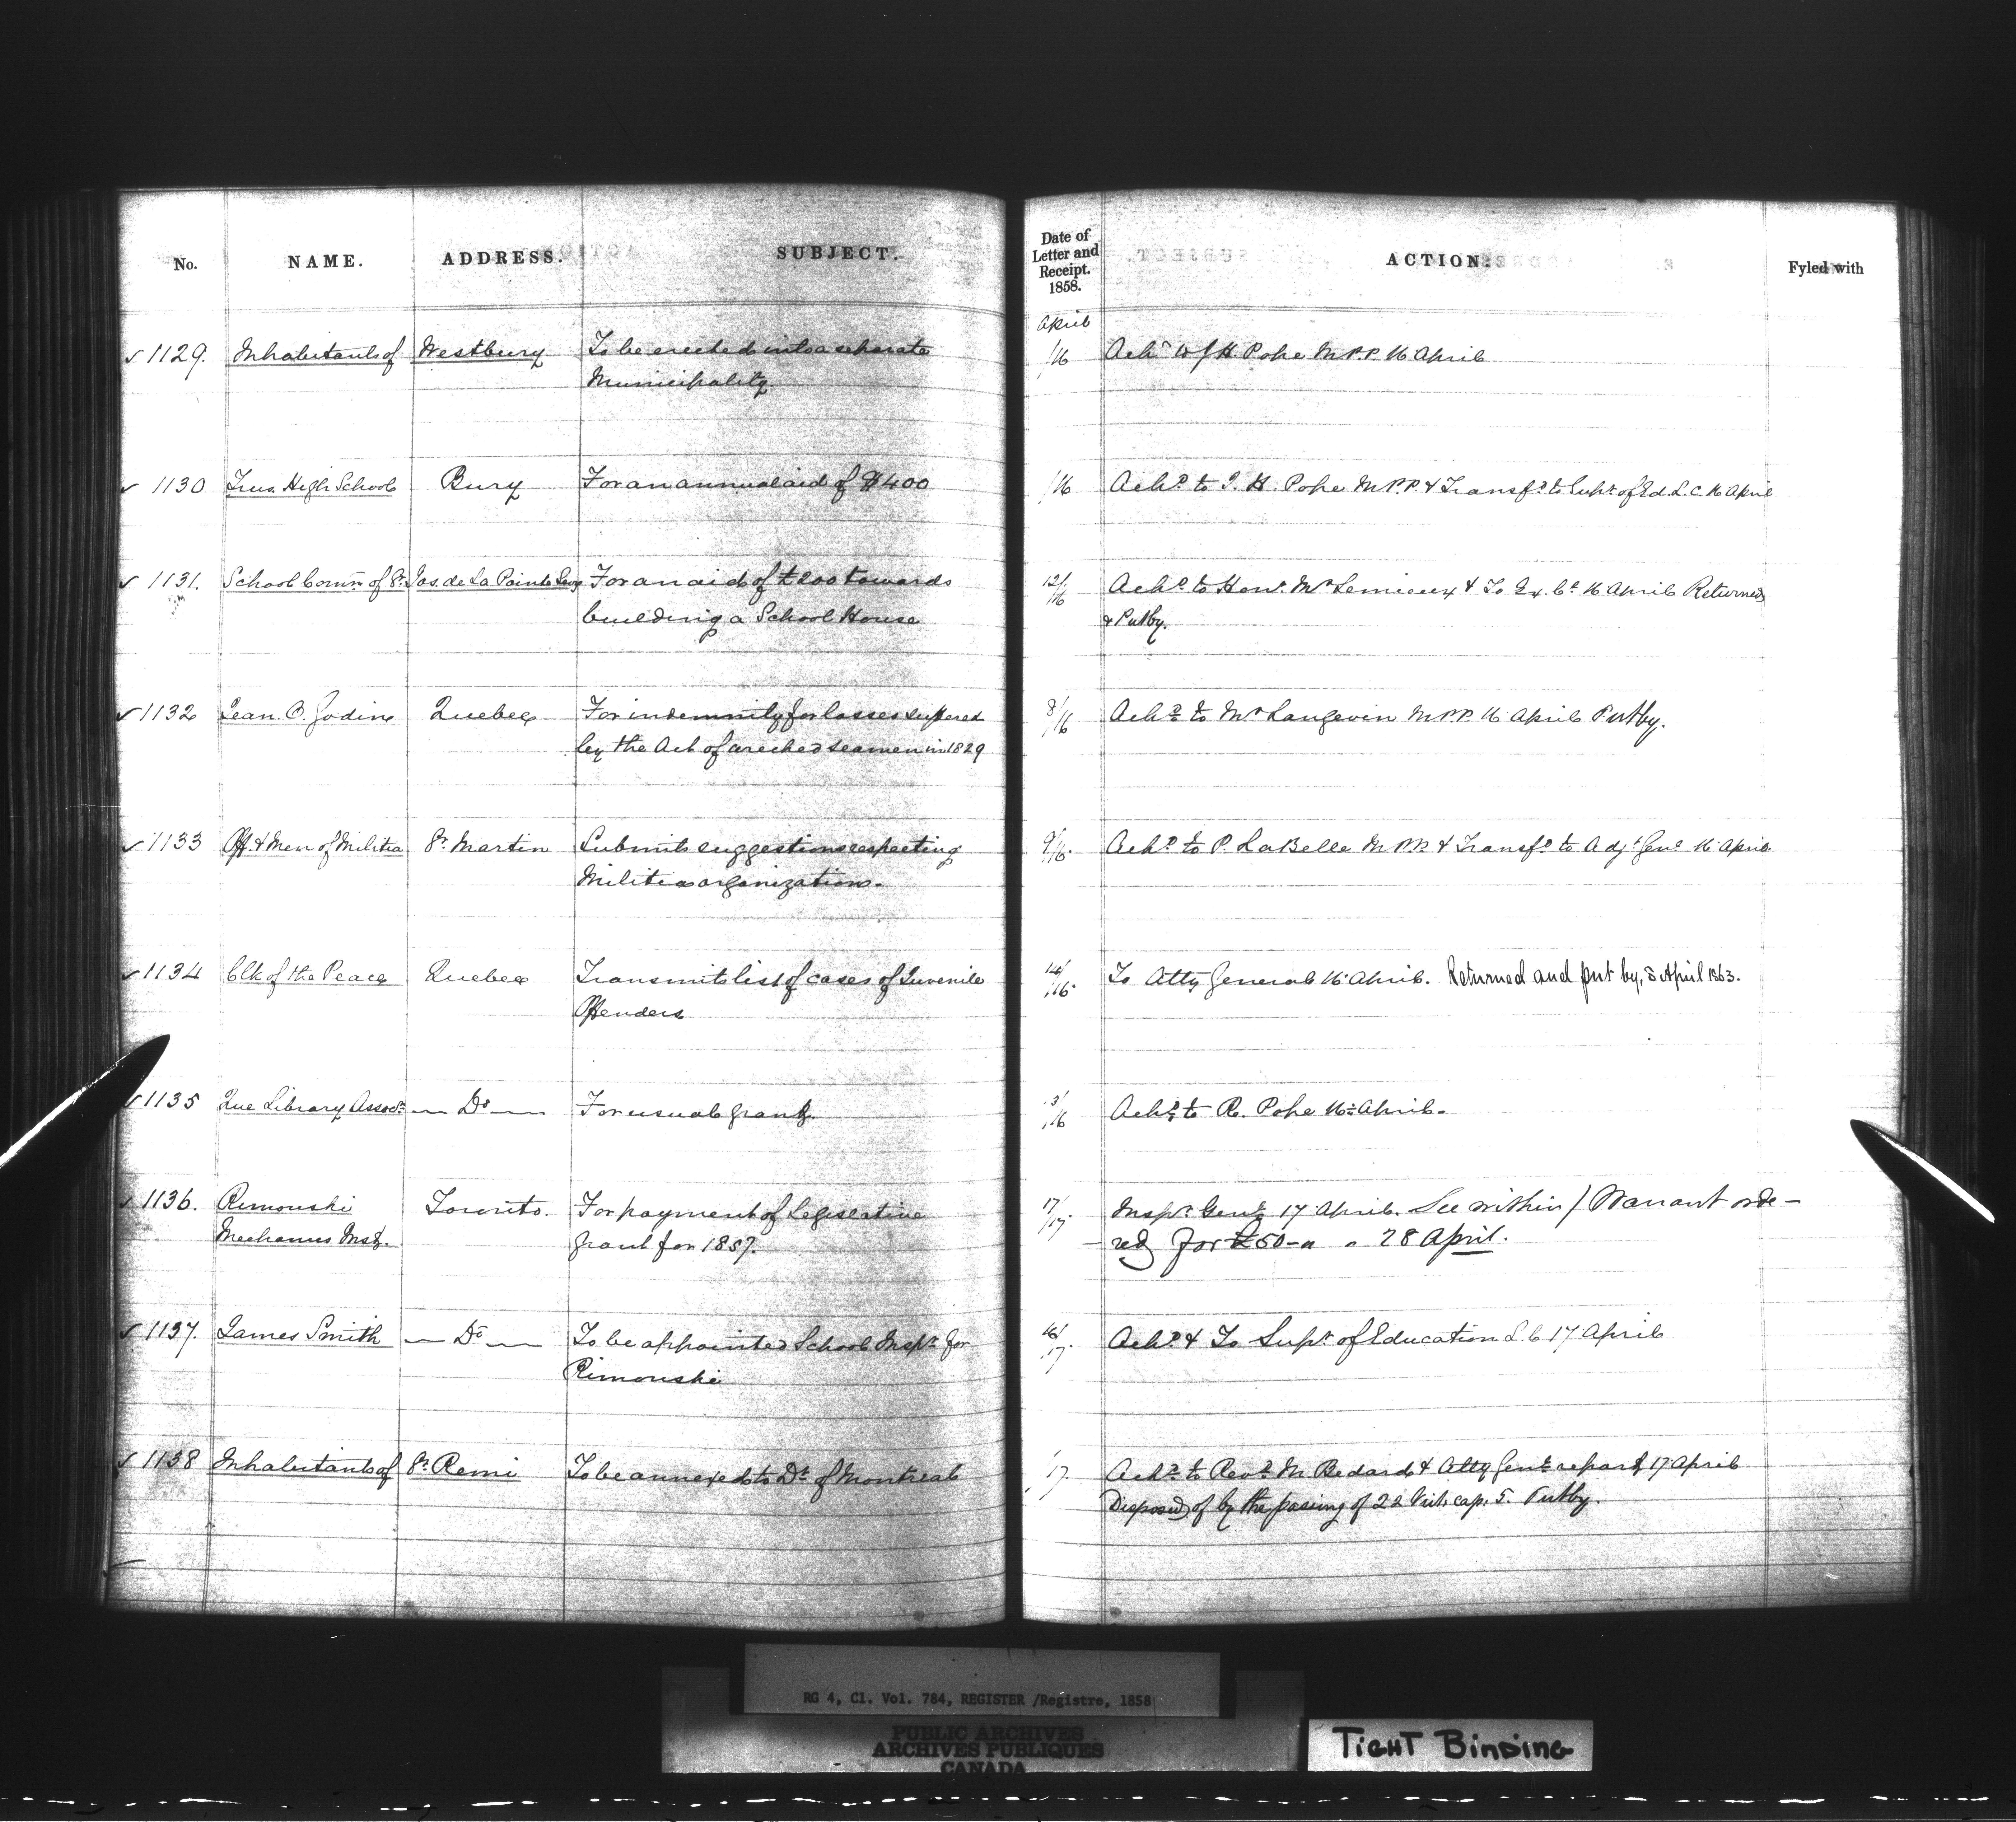 No. NAME. ADDRESS. SUBJECT. Date of Letter and Receipt. 1858. ACTION. Fyled with
April
1129. Inhabitants of Westbury To be erected into a separate /16 Ackd J. H. Pope M.P.P. 16 April
Municipality.
1130 Trus. High School Bury For an annual aid of $400 /16 Ackd to J. H. Pope M.P.P. & Transfd to Supt of Ed. L. C. 16 April
1131. School Comrs of St. Jos. de La Pointe Levy For an aid of £200 towards 12/16 Ackd to Honl Mr Lemieux & To Ex. Cl 16 April Returned
building a School House & Putby.
1132 Jean O. Godin Quebec For indemnity for losses suffered 8/16 Ackd to Mr Langevin M.P.P. 16 April Putby.
by the Act of wrecked seamen in 1829
1133 Off. & Men of Militia St. Martin Submits suggestions respecting 9/16. Ackd to P. LaBelle M.P.P. & Transfd to Adjt Genl 16 April
Militia organization.
1134 Clk of the Peace Quebec Transmits list of cases of Juvenile 14/16. To Atty General 16 April. Returned and put by, 8 April 1863.
Offenders
1135 Que Library Assocn — Do — For usual grant. 3/16 Ackd to R. Pope 16 April.
1136. Rimouski Toronto. For payment of Legislative 17/17 Inspr Genl 17 April. See within / Warrant orde-
Mechanics Inst. grant for 1857. -red for £50- 28 April.
1137. James Smith — Do — To be appointed School Inspr for 16/17. Ackd & To Supt of Education L. C 17 April
Rimouski
1138 Inhabitants of St. Remi To be annexed to Dt of Montreal /17. Ackd to Revd M. Bedard & Atty Genl report 17 April
Disposed of by the passing of 22 Vict. cap. 5. Putby.
RG 4, C1. Vol. 784, REGISTER /Registre, 1858
PUBLIC ARCHIVES
ARCHIVES PUBLIQUES
CANADA
TIGHT BINDING